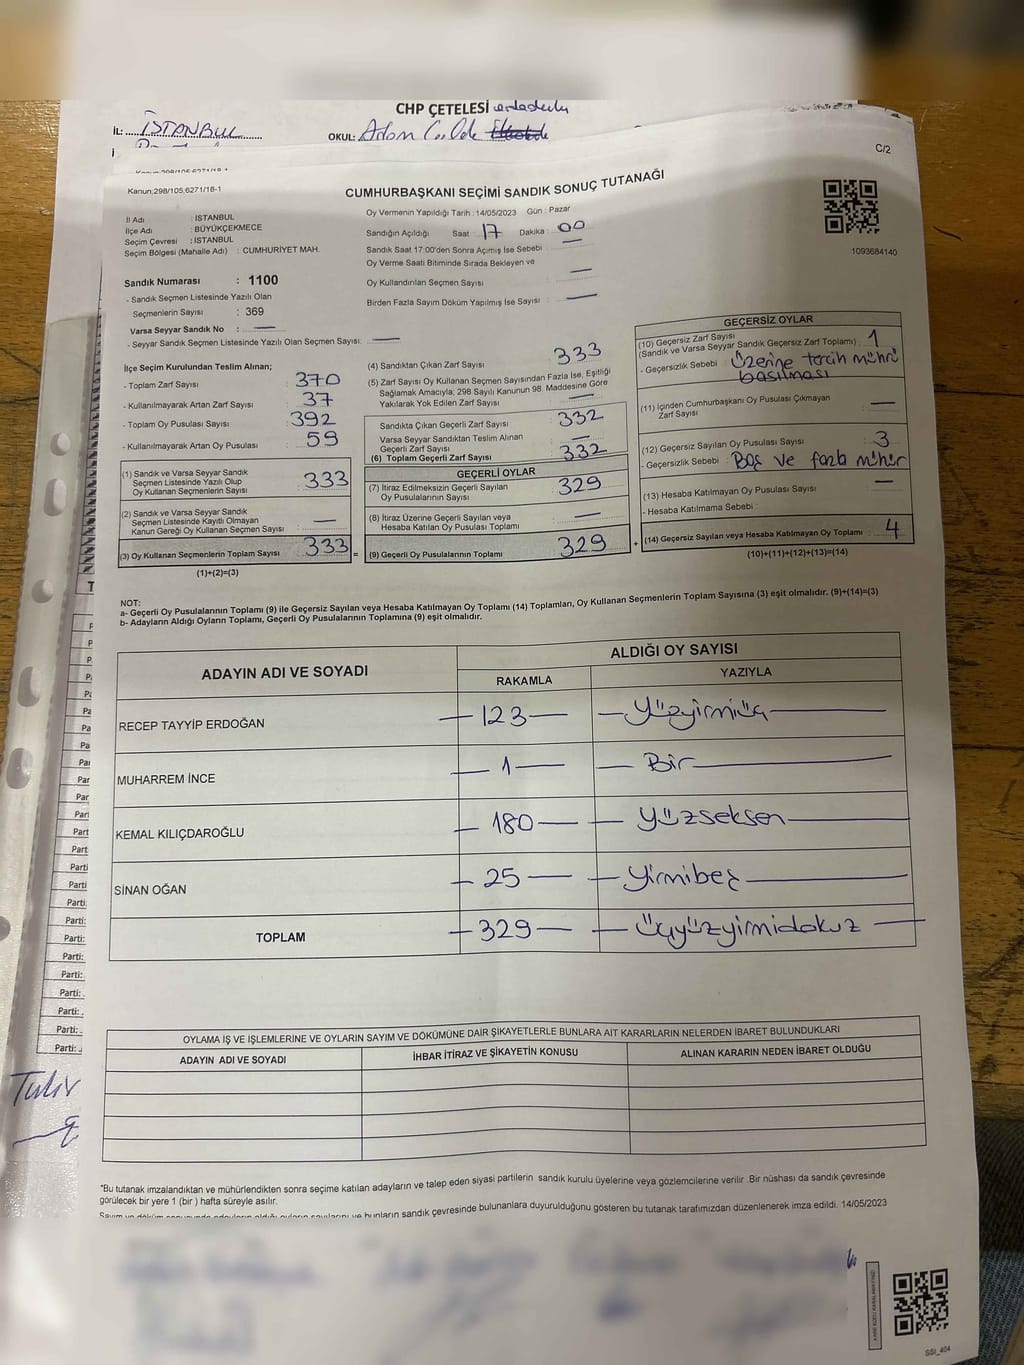 CHP ÇETELESİ
İL: İSTANBUL
OKUL:
C/2
Kanun;298/105,6271/18-1
CUMHURBAŞKANI SEÇİMİ SANDIK SONUÇ TUTANAĞI
İl Adı : İSTANBUL
İlçe Adı : BÜYÜKÇEKMECE
Seçim Çevresi : İSTANBUL
Seçim Bölgesi (Mahalle Adı) : CUMHURİYET MAH.
Oy Vermenin Yapıldığı Tarih : 14/05/2023 Gün : Pazar
Sandığın Açıldığı Saat : 17 Dakika : 00
Sandık Saat 17:00'den Sonra Açımış İse Sebebi : —
Oy Verme Saati Bitiminde Sırada Bekleyen ve
Oy Kullandırılan Seçmen Sayısı : —
Birden Fazla Sayım Döküm Yapılmış İse Sayısı : —
1093684140
Sandık Numarası : 1100
- Sandık Seçmen Listesinde Yazılı Olan
Seçmenlerin Sayısı : 369
Varsa Seyyar Sandık No : —
- Seyyar Sandık Seçmen Listesinde Yazılı Olan Seçmen Sayısı: —
İlçe Seçim Kurulundan Teslim Alınan;
- Toplam Zarf Sayısı : 370
- Kullanılmayarak Artan Zarf Sayısı : 37
- Toplam Oy Pusulası Sayısı : 392
- Kullanılmayarak Artan Oy Pusulası : 59
(1) Sandık ve Varsa Seyyar Sandık
Seçmen Listesinde Yazılı Olup
Oy Kullanan Seçmenlerin Sayısı : 333
(2) Sandık ve Varsa Seyyar Sandık
Seçmen Listesinde Kayıtlı Olmayan
Kanun Gereği Oy Kullanan Seçmen Sayısı : —
(3) Oy Kullanan Seçmenlerin Toplam Sayısı : 333
(1)+(2)=(3)
(4) Sandıktan Çıkan Zarf Sayısı : 333
(5) Zarf Sayısı Oy Kullanan Seçmen Sayısından Fazla İse, Eşitliği
Sağlamak Amacıyla; 298 Sayılı Kanunun 98. Maddesine Göre
Yakılarak Yok Edilen Zarf Sayısı : —
Sandıkta Çıkan Geçerli Zarf Sayısı : 332
Varsa Seyyar Sandıktan Teslim Alınan
Geçerli Zarf Sayısı : —
(6) Toplam Geçerli Zarf Sayısı : 332
GEÇERLİ OYLAR
(7) İtiraz Edilmeksizin Geçerli Sayılan
Oy Pusulalarının Sayısı : 329
(8) İtiraz Üzerine Geçerli Sayılan veya
Hesaba Katılan Oy Pusulası Toplamı : —
= (9) Geçerli Oy Pusulalarının Toplamı : 329
GEÇERSİZ OYLAR
(10) Geçersiz Zarf Sayısı
(Sandık ve Varsa Seyyar Sandık Geçersiz Zarf Toplamı) : 1
- Geçersizlik Sebebi : Üzerine tercih mührü
basılması
(11) İçinden Cumhurbaşkanı Oy Pusulası Çıkmayan
Zarf Sayısı : —
(12) Geçersiz Sayılan Oy Pusulası Sayısı : 3
- Geçersizlik Sebebi : Boş ve fazla mühür
(13) Hesaba Katılmayan Oy Pusulası Sayısı : —
- Hesaba Katılmama Sebebi :
+ (14) Geçersiz Sayılan veya Hesaba Katılmayan Oy Toplamı : 4
(10)+(11)+(12)+(13)=(14)
NOT:
a- Geçerli Oy Pusulalarının Toplamı (9) ile Geçersiz Sayılan veya Hesaba Katılmayan Oy Toplamı (14) Toplamları, Oy Kullanan Seçmenlerin Toplam Sayısına (3) eşit olmalıdır. (9)+(14)=(3)
b- Adayların Aldığı Oyların Toplamı, Geçerli Oy Pusulalarının Toplamına (9) eşit olmalıdır.
ADAYIN ADI VE SOYADI
ALDIĞI OY SAYISI
RAKAMLA YAZIYLA
RECEP TAYYİP ERDOĞAN —123— —Yüzyirmiüç—
MUHARREM İNCE — 1 — — Bir—
KEMAL KILIÇDAROĞLU — 180 — — Yüzseksen—
SİNAN OĞAN — 25 — — Yirmibeş—
TOPLAM —329— — Üçyüzyirmidokuz —
OYLAMA İŞ VE İŞLEMLERİNE VE OYLARIN SAYIM VE DÖKÜMÜNE DAİR ŞİKAYETLERLE BUNLARA AİT KARARLARIN NELERDEN İBARET BULUNDUKLARI
ADAYIN ADI VE SOYADI İHBAR İTİRAZ VE ŞİKAYETİN KONUSU ALINAN KARARIN NEDEN İBARET OLDUĞU
*Bu tutanak imzalandıktan ve mühürlendikten sonra seçime katılan adayların ve talep eden siyasi partilerin sandık kurulu üyelerine veya gözlemcilerine verilir .Bir nüshası da sandık çevresinde
görülecek bir yere 1 (bir ) hafta süreyle asılır.
bunların sandık çevresinde bulunanlara duyurulduğunu gösteren bu tutanak tarafımızdan düzenlenerek imza edildi. 14/05/2023
Parti:
Parti:
Parti:
Parti:
Parti:
Parti:
Parti:
Parti:
SSI_404